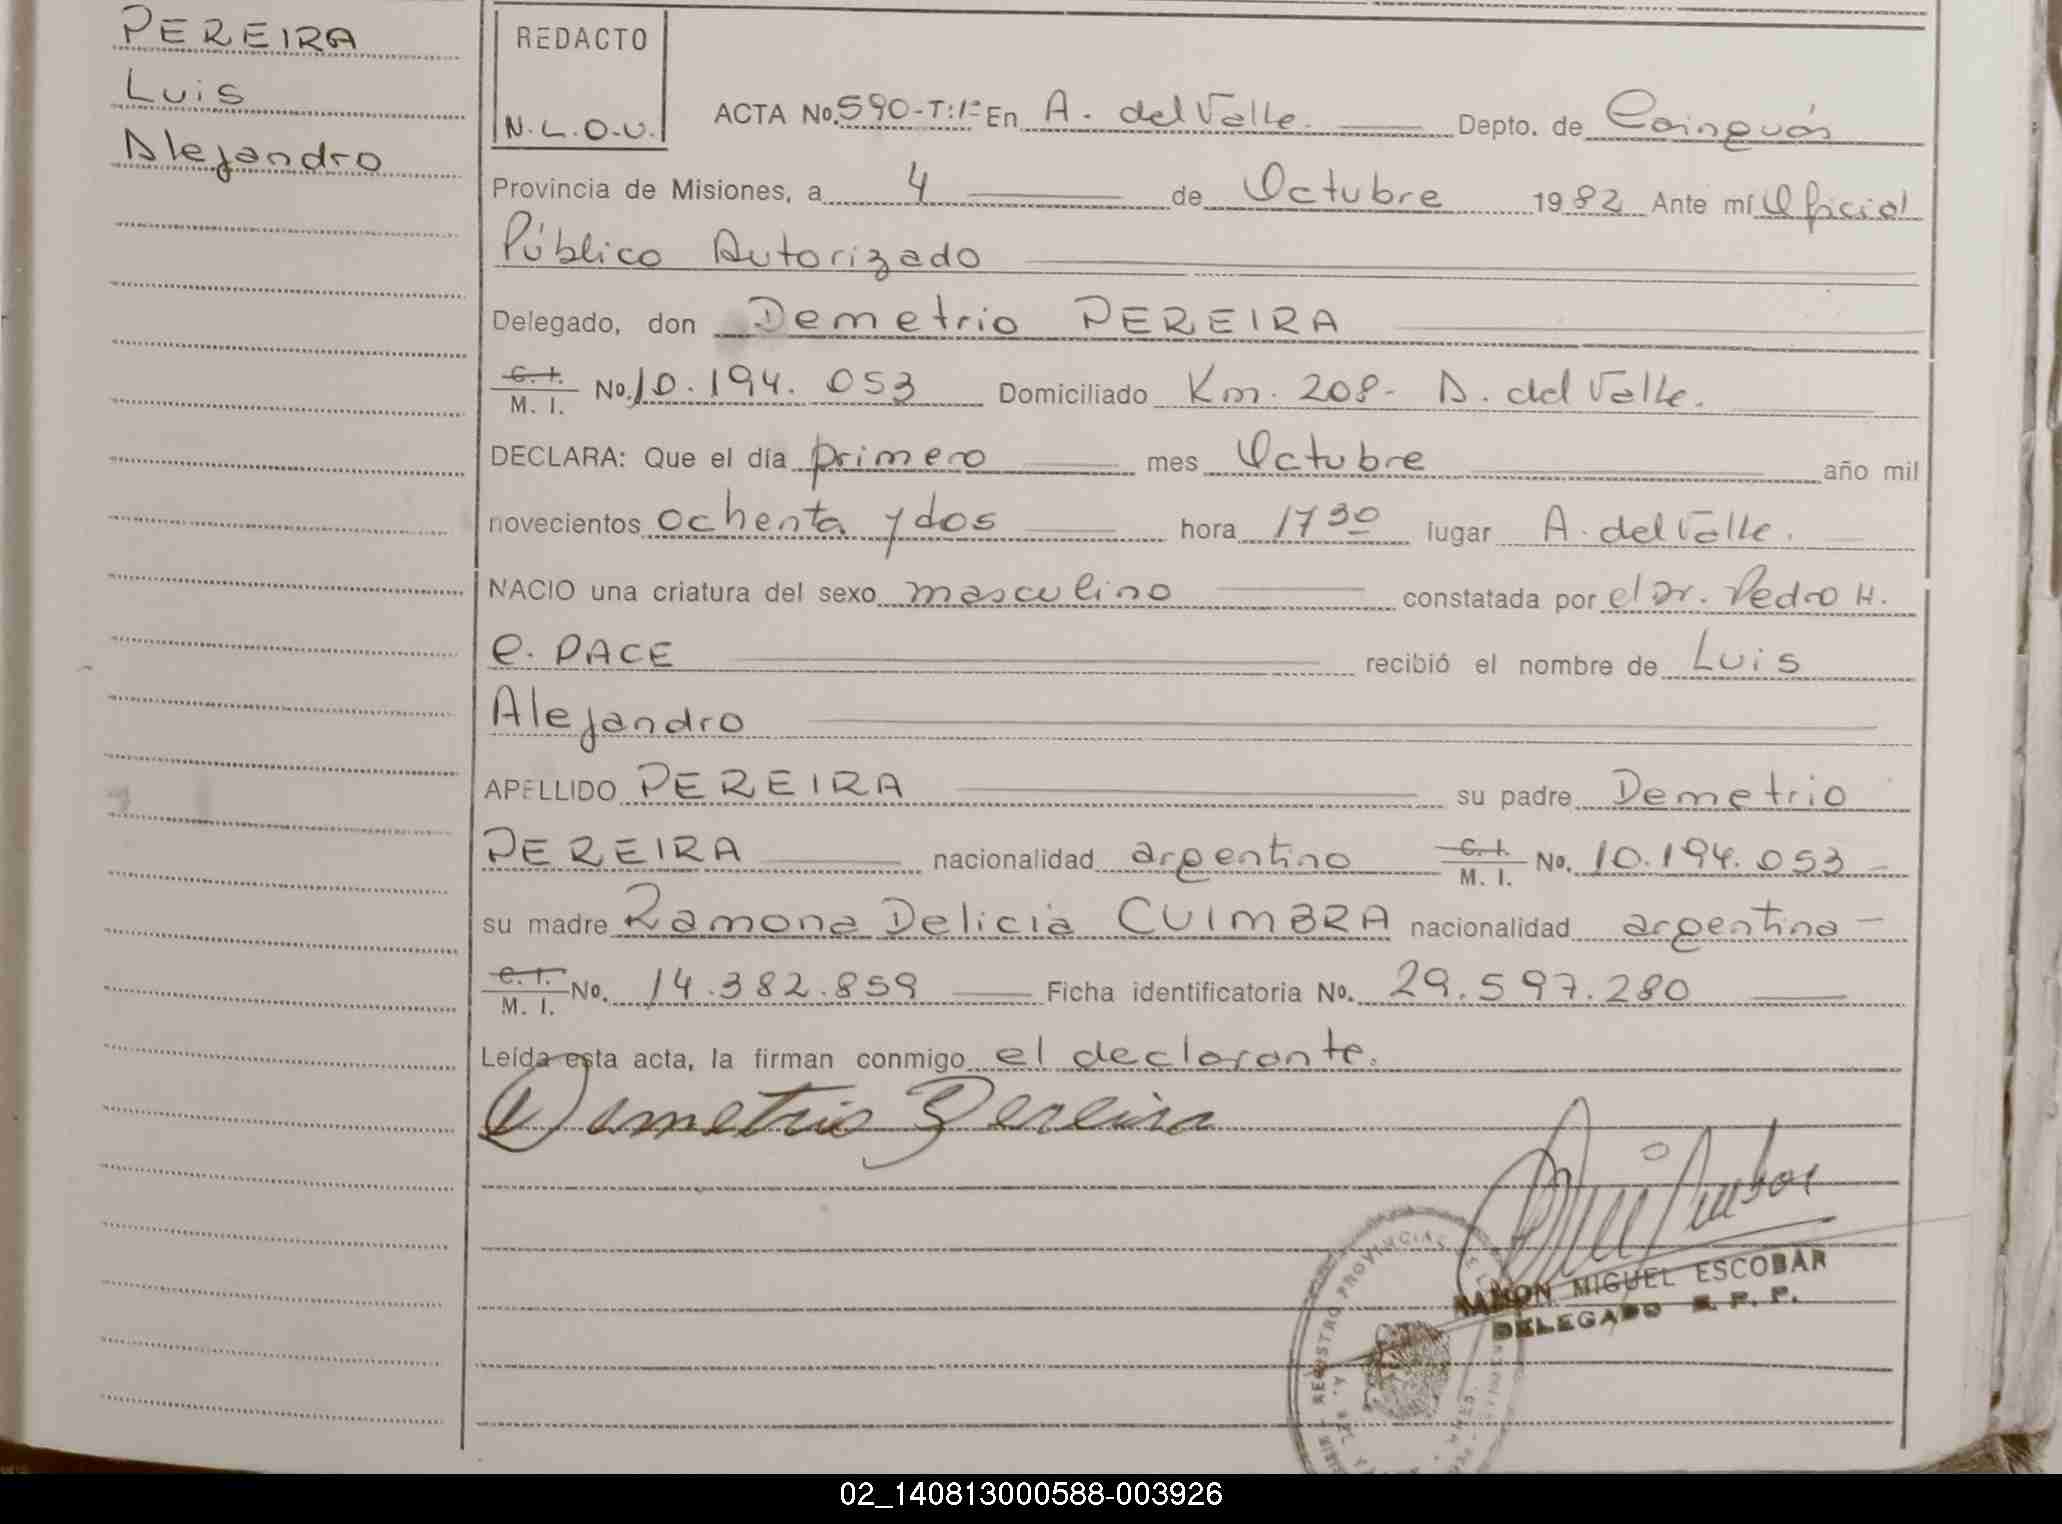 PEREIRA
Luis
Alejandro
REDACTO
N.L.O.U.
ACTA No. 590-T:1º En A. del Valle. Depto. de Cainguás
Provincia de Misiones, a 4 de Octubre 1982 Ante mí Oficial
Público Autorizado
Delegado, don Demetrio PEREIRA
C. I. M. I. No. 10.194.053 Domiciliado Km. 208- A. del Valle.
DECLARA: Que el día primero mes Octubre año mil
novecientos ochenta y dos hora 17 30 lugar A. del Valle.
NACIO una criatura del sexo masculino constatada por el Dr. Pedro H.
E. PACE recibió el nombre de Luis
Alejandro
APELLIDO PEREIRA su padre Demetrio
PEREIRA nacionalidad argentino C. I. M. I. No. 10.194.053 -
su madre Ramona Delicia CUIMBRA nacionalidad argentina -
C. I. M. I. No. 14.382.859 Ficha identificatoria No. 29.597.280
Leída esta acta, la firman conmigo el declarante.
Demetrio Pereira
RAMON MIGUEL ESCOBAR
DELEGADO R. P. P.
REGISTRO PROVINCIAL
02_140813000588-003926